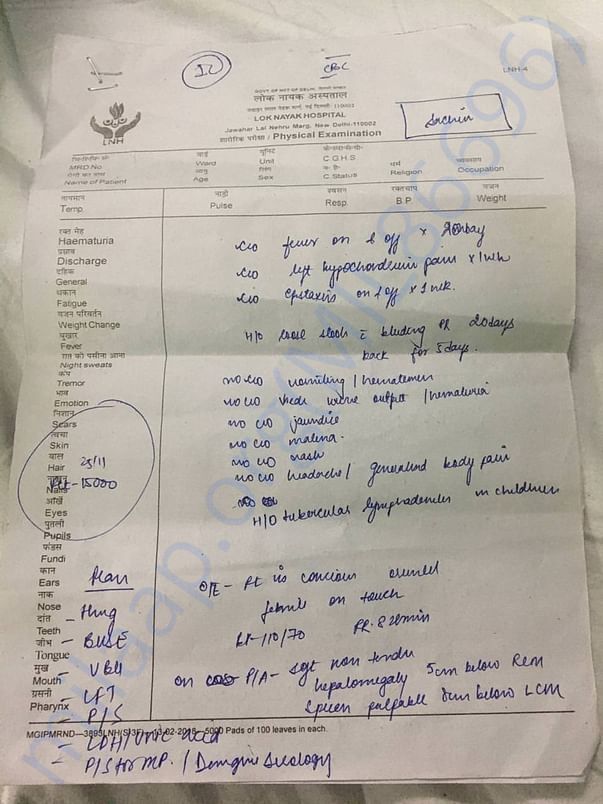 12
CBC
LNH-4
GOVT. OF NCT OF DELHI
लोक नायक अस्पताल
LNH
LOK NAYAK HOSPITAL
Jawahar Lal Nehru Marg, New Delhi-110002
शारीरिक परीक्षा / Physical Examination
Sachin
MRD No
Name of Patient
वार्ड
Ward
आयु
Age
यूनिट
Unit
लिंग
Sex
C.G.H.S
C.Status
धर्म
Religion
व्यवसाय
Occupation
तापमान
Temp.
नाड़ी
Pulse
श्वसन
Resp.
रक्तचाप
B.P.
वजन
Weight
रक्त मेह
Haematuria
c/o fever on & off x 20 day
प्रस्राव
Discharge
c/o left hypochondrium pain x 1 wk
दैहिक
General
c/o epistaxis on & off x 1 wk.
थकान
Fatigue
वजन परिवर्तन
Weight Change
H/O loose stools c bleeding PR 20 days
बुखार
Fever
back for 5 days.
रात को पसीना आना
Night sweats
कंप
Tremor
no c/o vomiting / hematemesis
भाव
Emotion
no c/o urine output / hematuria
निशान
Scars
no c/o jaundice
त्वचा
Skin
no c/o malena.
बाल
Hair
25/11
no c/o rash
Nails
Plt - 15000
no c/o headache / generalised body pain
आँखें
Eyes
H/O tubercular lymphadenitis in childhood
पुतली
Pupils
फंडस
Fundi
कान
Ears
Plan
O/E - Pt is concious oriented
नाक
Nose
febrile on touch
दांत
Teeth
- Hmg
BP - 110/70
जीभ
Tongue
- BUSE
मुख
Mouth
- VBG
P/A - soft non tender
hepatomegaly 5cm below RCM
ग्रसनी
Pharynx
- LFT
spleen palpable 8cm below LCM
- P/S
MGIPMRND—3893LNH(S-3F)—13-02-2018—5000 Pads of 100 leaves in each.
- LDH / Uric acid
- P/S for MP. / Dengue serology
milaap.org (MID 866696)